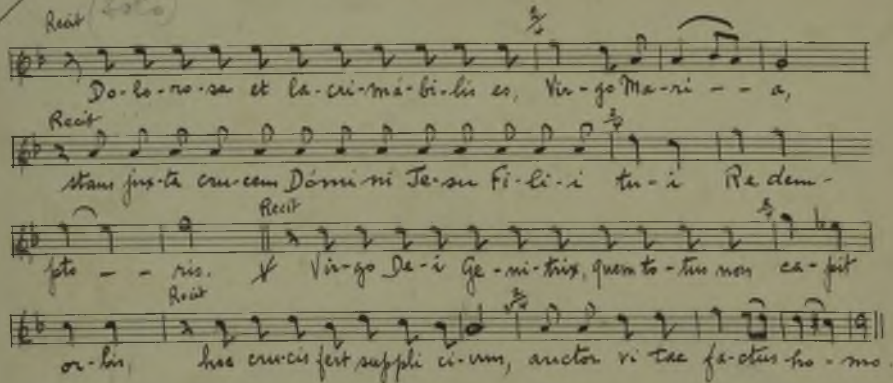 Récit (Solo)
Do-lo-ro-sa et la-cri-má-bi-lis es, Vir-go Ma-ri - - a,
Récit
stans jux-ta cru-cem Dómini Je-su Fi-li-i tu-i Re dem-
Récit
pto - - ris. ℣ Vir-go De-i Ge-ni-trix, quem to-tus non ca-pit
Récit
or-bis, hoc cru-cis fert suppli ci-um, auctor vi tae fa-ctus ho-mo